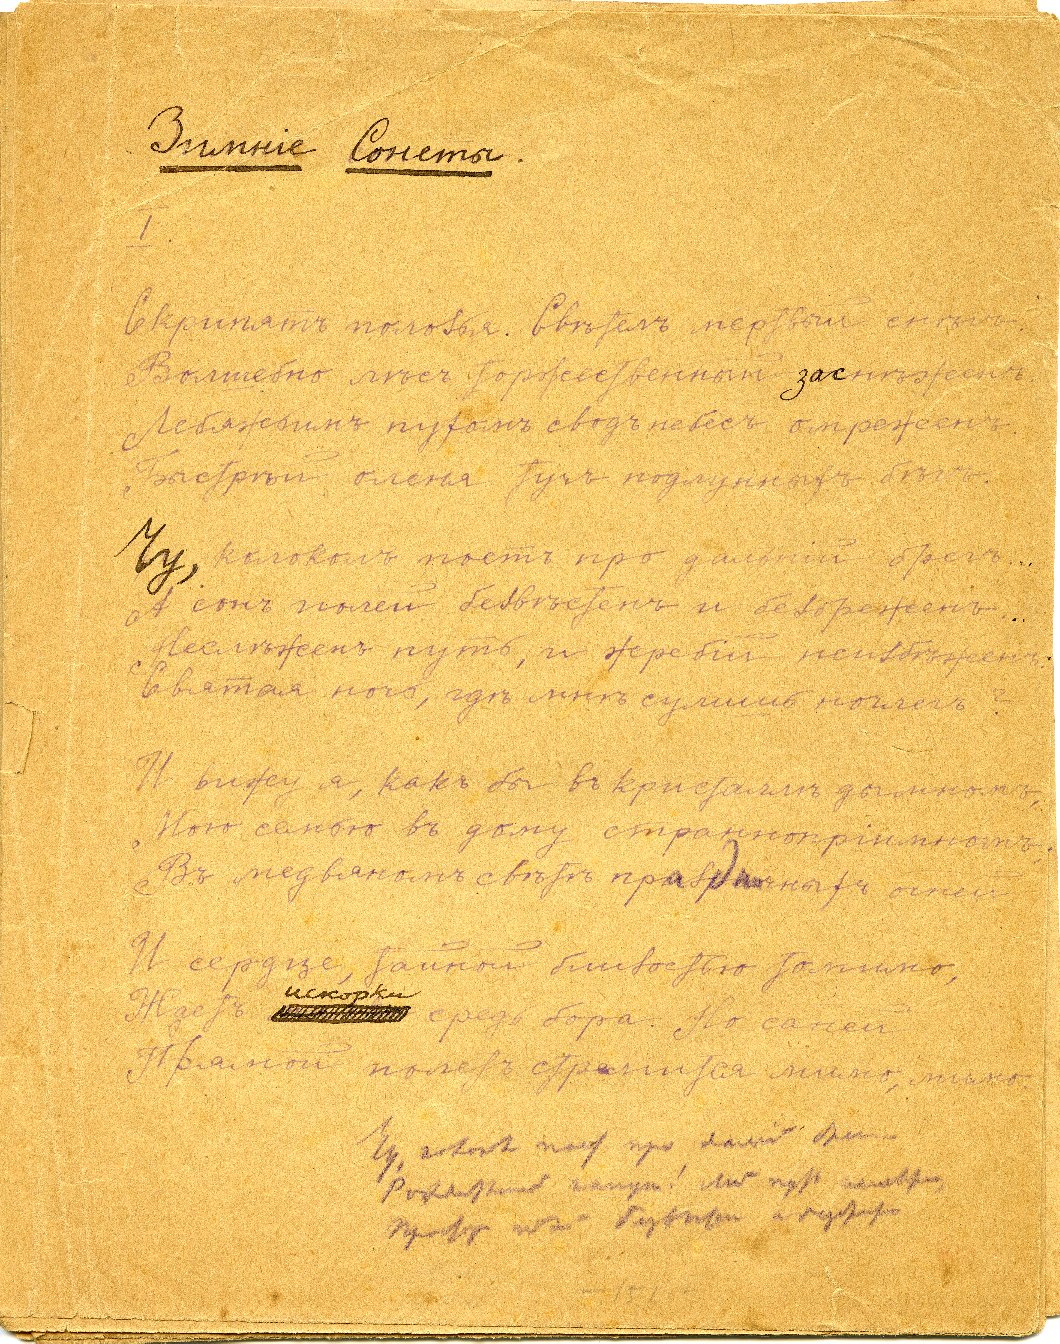 Зимніе Сонеты.
I.
Скрипятъ полозья. Свѣтелъ мертвый снѣгъ.
Волшебно лѣсъ торжественный заснѣженъ.
Лебяжьимъ пухомъ сводъ небесъ омреженъ.
Быстрѣй оленя тучъ подлунныхъ бѣгъ.
Чу, колоколъ поетъ про дальній брегъ...
А сонъ полей безвѣстенъ и безбреженъ...
Неслѣженъ путь, и жребій неизбѣженъ.
Святая ночь, гдѣ мнѣ сулишь ночлегъ?
И вижу я, какъ бы въ кристаллѣ дымномъ,
Мою семью въ дому страннопріимномъ,
Въ медвяномъ свѣтѣ праздничныхъ огней.
И сердце, тайной близостью томимо,
Ждетъ искорки средь бора. Но саней
Прямой полетъ стремится мимо, мимо.
Чу, поетъ про
путь